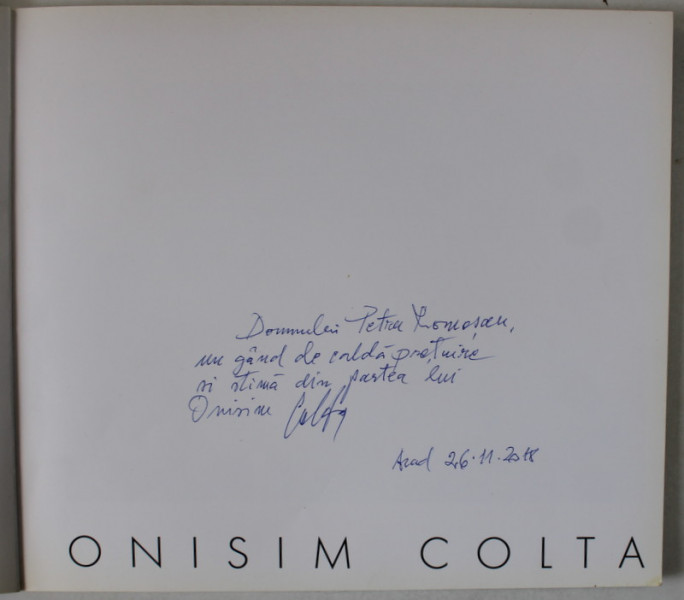 Domnului Petru Romoșan,
un gând de caldă prețuire
și stimă din partea lui
Onisim Colta
Arad 26.11.2018
ONISIM COLTA